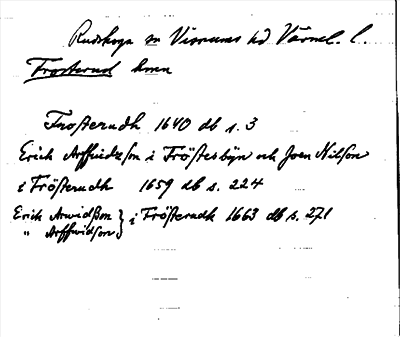 Rudskoga sn Visnums hd Värml. l.
Frösterud hmn
Frosterudh 1640 db s. 3
Erich Arffuidzson i Fröstesbÿn och Joen Nilson
i Frösterudh 1659 db s. 224
Erich Arwidßon } i Frösterudh 1663 db s. 271
" Arffwidson }